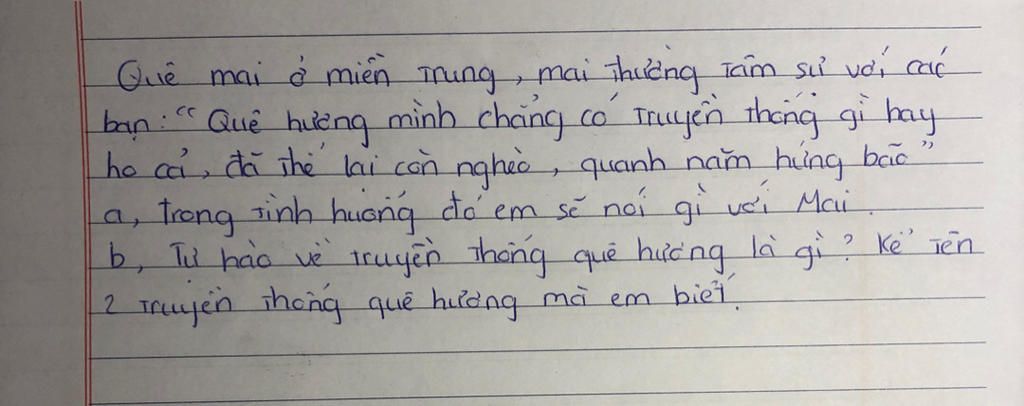 Quê mai ở miền Trung, mai thường tâm sự với các
bạn: "Quê hương mình chẳng có truyền thống gì hay
ho cả, đã thế lại còn nghèo, quanh năm hứng bão"
a, trong tình huống đó em sẽ nói gì với Mai.
b, Tự hào về truyền thống quê hương là gì? Kể tên
2 truyền thống quê hương mà em biết.